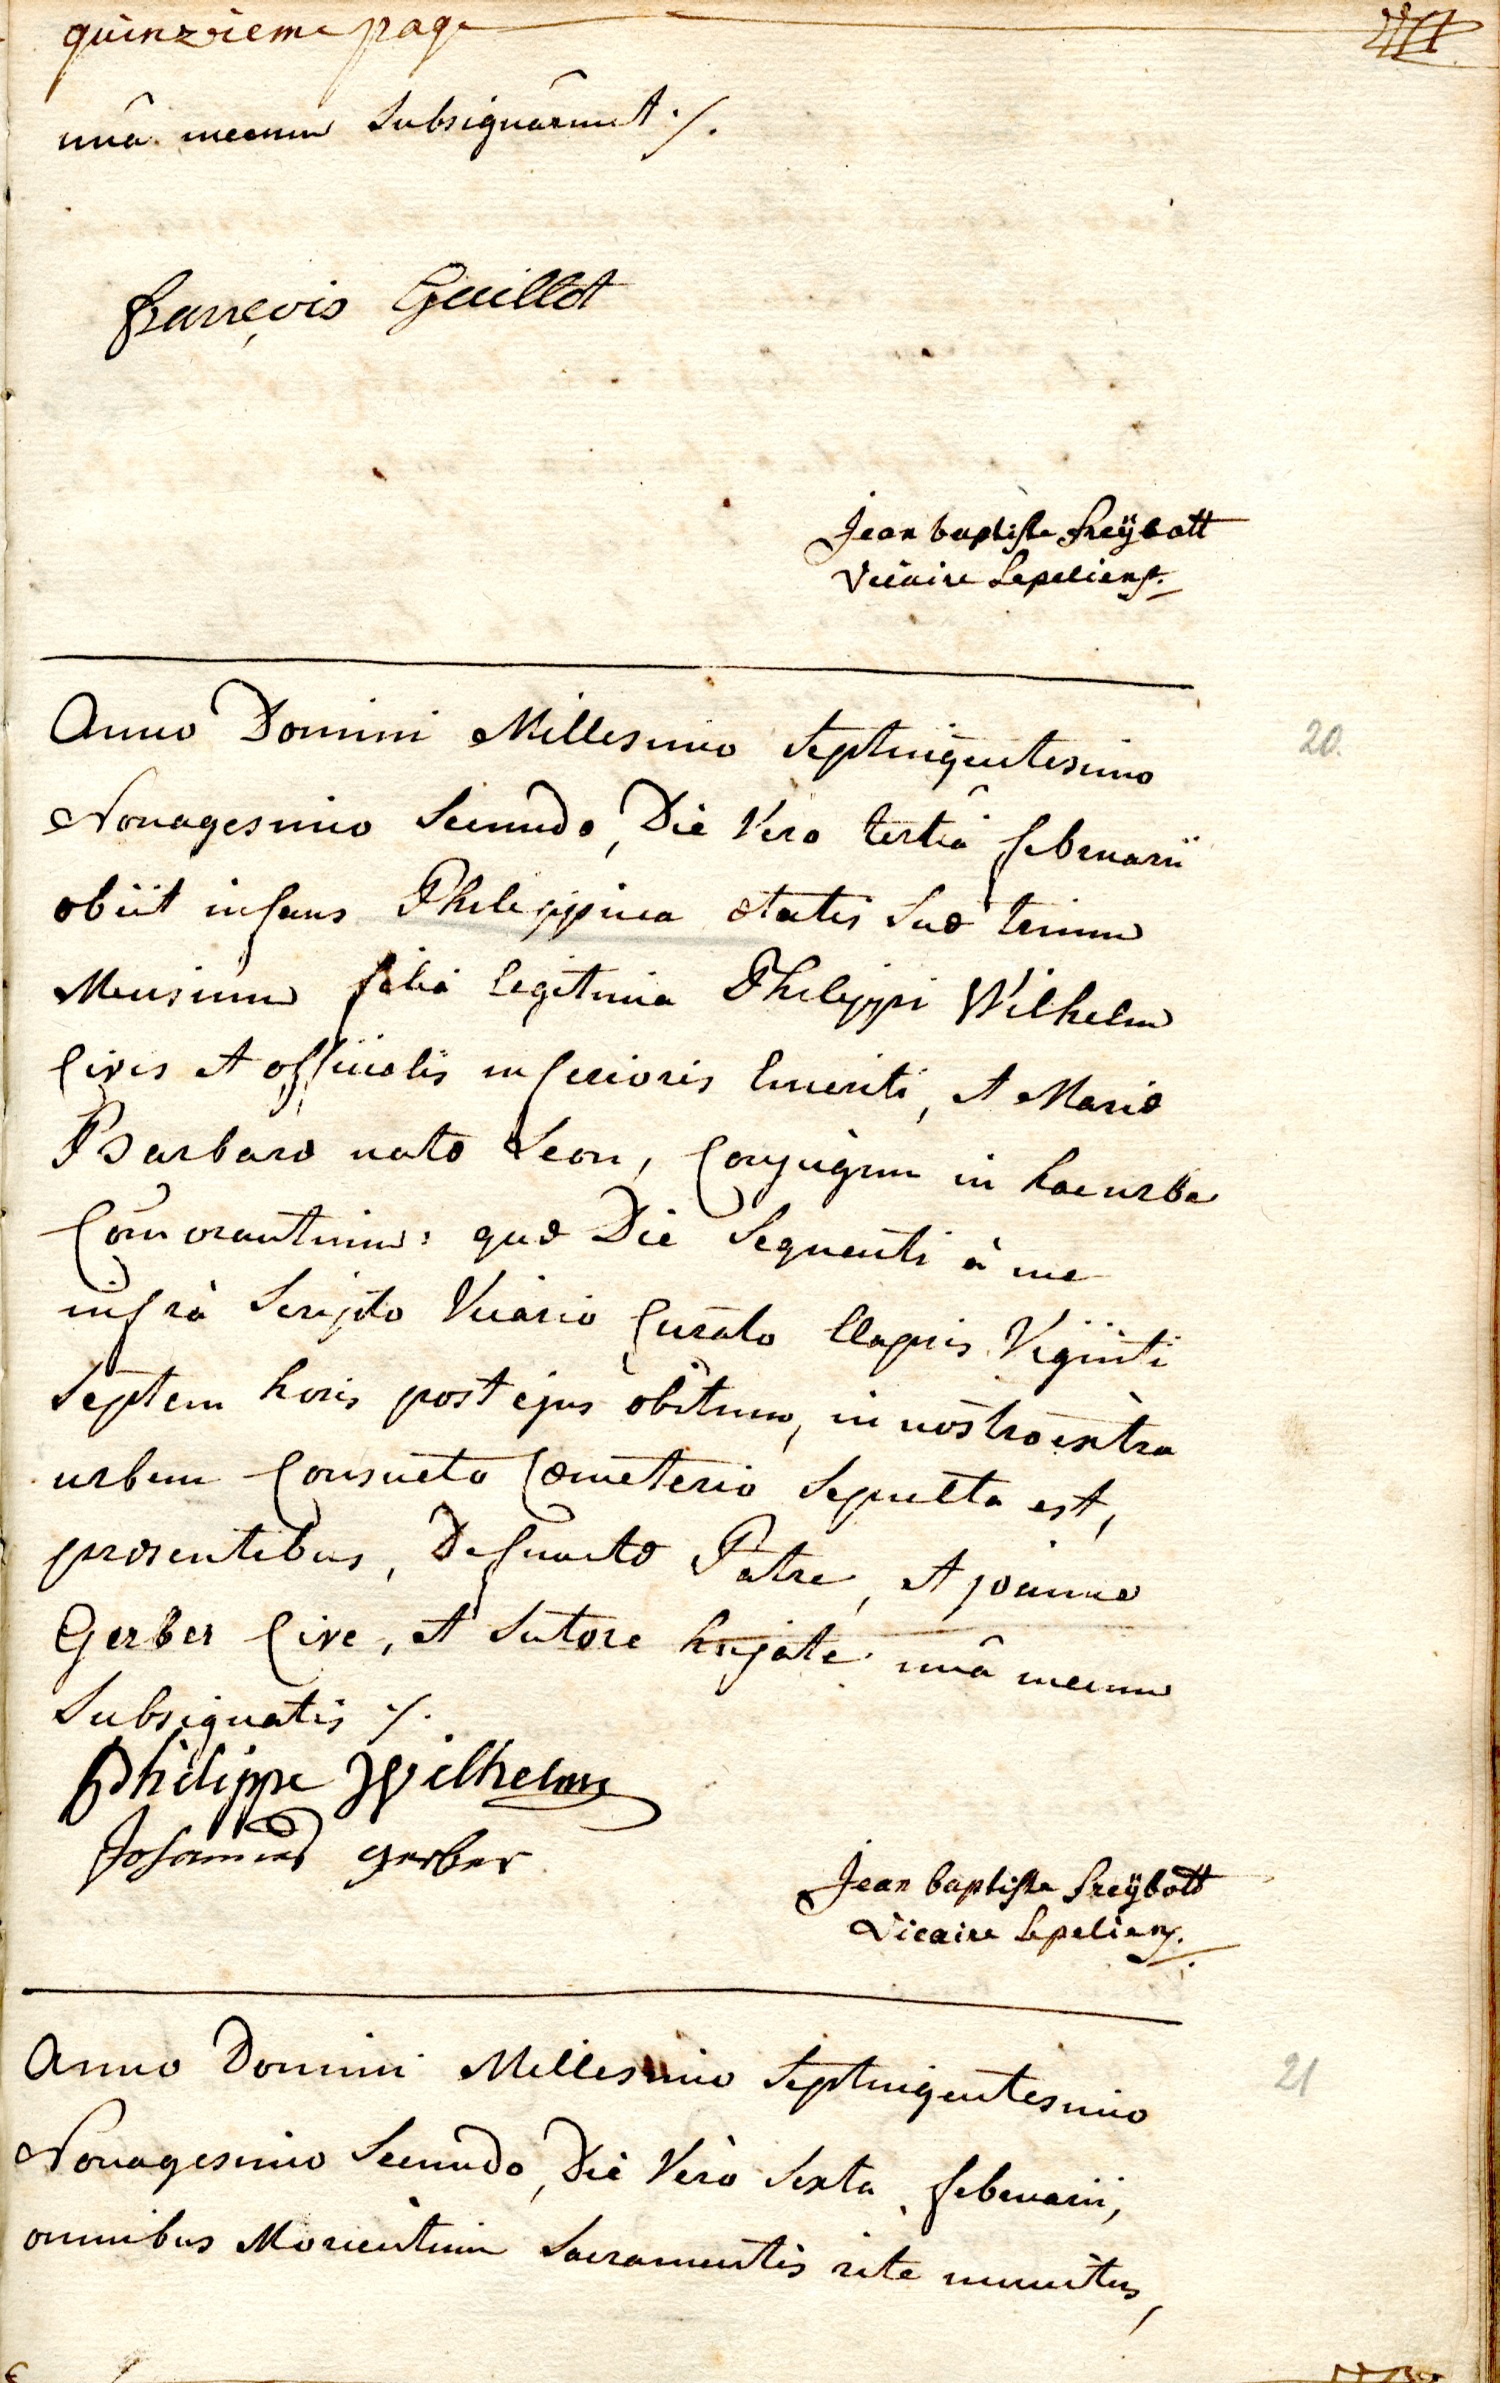 quinzieme page
unâ mecum Subsignârunt ./.
françois Guillot
Jean baptiste freÿbott
Vicaire
20.
Anno Domini Millesimo Septingentesimo
Nonagesimo Secundo, Die Vero tertiâ februarii
obiit infans Philippina ætatis suæ trium
Mensium filia legitima Philippi Wilhelm
Civis et officialis inferioris Emeriti, et Mariæ
Barbaræ natæ Leon, Conjugum in hac urbe
Com̄orantium: quæ Die Sequenti à me
infrà Scripto Vicario Curato Elapsis Viginti
Septem horis post ejus obitum, in nostro extra
urbem Consueto Cœmeterio Sepulta est,
præsentibus, Defunctæ Patre, et joanne
Gerber Cive, et Sutore hujate unâ mecum
Subsignatis ./.
philippe Wilhelm
Johannes gerber
Jean baptiste freÿbott
Vicaire
21
Anno Domini Millesimo Septingentesimo
Nonagesimo Secundo, Die Verò Sexta februarii,
omnibus Morientium Sacramentis rite munitus,